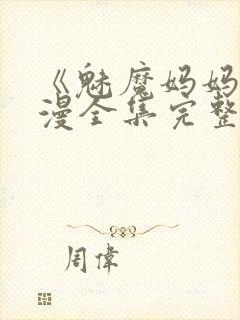 《魅魔妈妈
漫全集完整
周偉